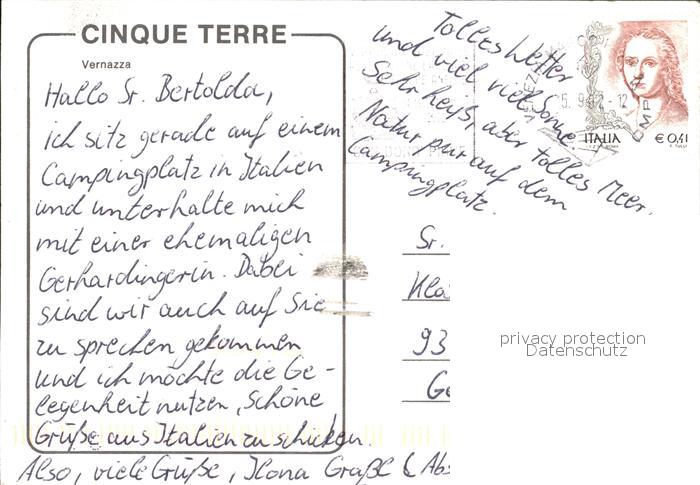 CINQUE TERRE
Vernazza
Hallo Sr. Bertolda,
ich sitz gerade auf einem
Campingplatz in Italien
und unterhalte mich
mit einer ehemaligen
Gerhardingerin. Dabei
sind wir auch auf Sie
zu sprechen gekommen
und ich möchte die Ge-
legenheit nutzen, schöne
Grüße aus Italien zu schicken.
Also, viele Grüße, Ilona Graßl (Abs
Tolles Wetter
und viel viel Sonne
Sehr heiß, aber tolles Meer.
Natur pur auf dem
Campingplatz.
ITALIA € 0,41
Sr.
93
Ge
privacy protection
Datenschutz